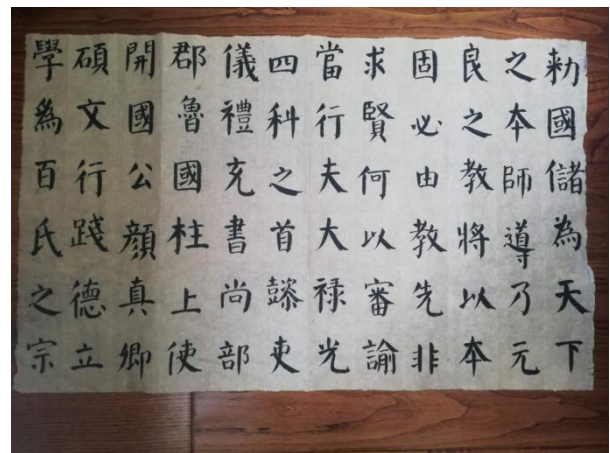 勑國儲為天下
之本師導乃元
良之教將以本
固必由教先非
求賢何以審諭
當行夫大禄光
四科之首懿吏
儀禮充書尚部
郡魯國柱上使
開國公顔真卿
碩文行踐德立
學為百氏之宗